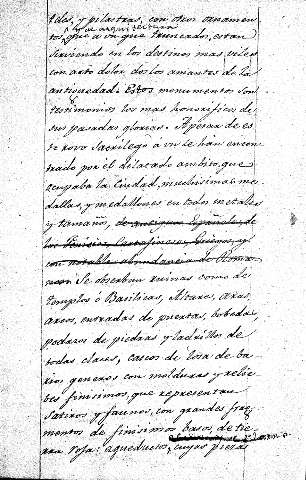 teles, y pilastras, con otros ornamen-
tos, y de arquitectura
que a un que truncados, estan
sirviendo en los destinos mas viles
con arto dolor de los amantes de la
antiguedad. Estos monumentos son
testimonios los mas honorificos de
sus pasadas glorias. Apesar de es-
te robo sacrilego aun se han encon-
trado por el dilatado ambito, que
ocupaba la Ciudad, muchisimas me-
dallas, y medallones en todos metales
y tamaños, de antiguas Españolas, de
los Fenicios, Cartagineses, Griegos, y
con notable abundancia de Roma-
nos Se observan ruinas como de
templos ó Basilicas, Altares, aras,
arcos, entradas de puertas, bobedas,
pedazos de piedras y ladrillos de
todas clases, cascos de losa de ba-
rios generos con molduras y relie-
bes finisimos, que representan
Satiros y faunos, con grandes frag-
mentos de finisimos basos, de tie-
rra rosa: aqueductos, cuyas piezas